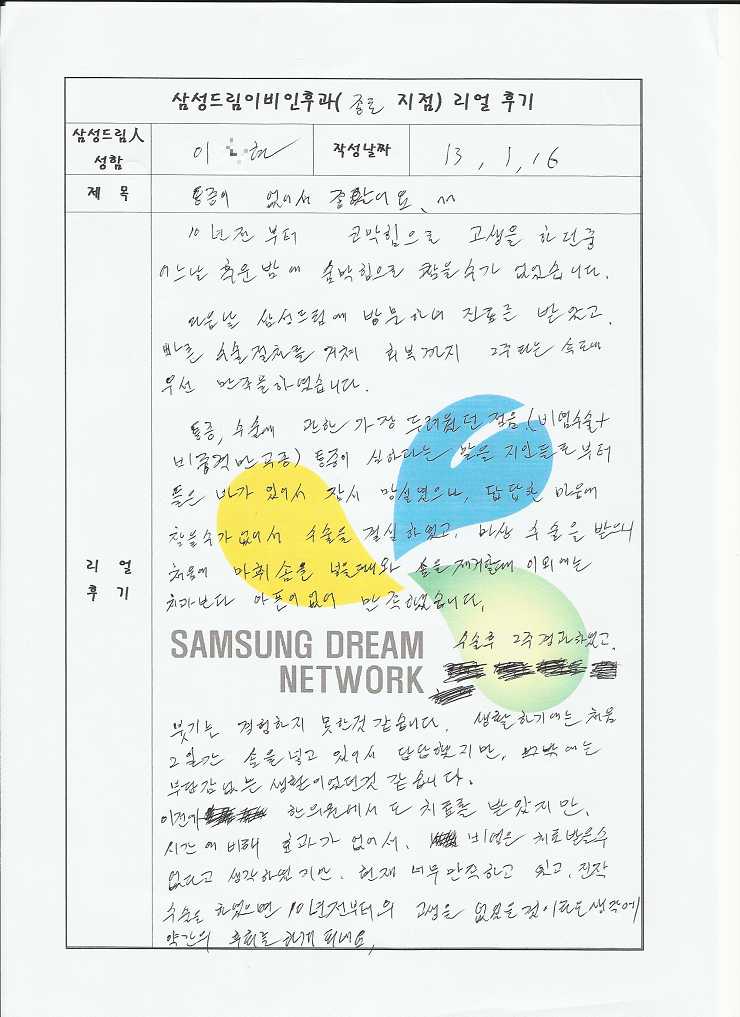 삼성드림이비인후과( 종로 지점) 리얼 후기
삼성드림人
성함
이 현
작성날짜
13, 1, 16
제 목
통증이 없어서 좋았어요. ^^
10년전부터 코막힘으로 고생을 하던중
어느날 추운밤에 숨막힘으로 참을수가 없었습니다.
다음날 삼성드림에 방문하여 진료를 받았고,
빠른 수술절차를 거쳐 회복까지 2주라는 속도에
우선 만족을하였습니다.
통증, 수술에 관한 가장 두려웠던 점음.(비염수술+
비중격만곡증) 통증이 심하다는 말을 지인들로부터
들은 바가 있어서 잠시 망설였으나, 답답한 마음에
참을수가없어서 수술을 결심하였고, 막상 수술을 받으니
처음에 마취솜을 넣을때와 솜을제거할때 이외에는
치과보다 아픈이없어 만족했습니다.
리 얼
후 기
SAMSUNG DREAM
NETWORK
수술후 2주경과하였고.
붓기는 경험하지 못한것 같습니다. 생활하기에는 처음
2일간 솜을넣고 있어서 답답했지만, 밖에는
부담감없는 생활이었던것 같습니다.
이전에 한의원에서도 치료를 받았지만,
시간에 비해 효과가 없어서. 비염은 치료받을수
없다고 생각하였지만. 현재 너무만족하고 있고, 진작
수술을 하였으면 10년전부터의 고생을 없었을것이라는생각에
약간의 후회를하게 되네요,